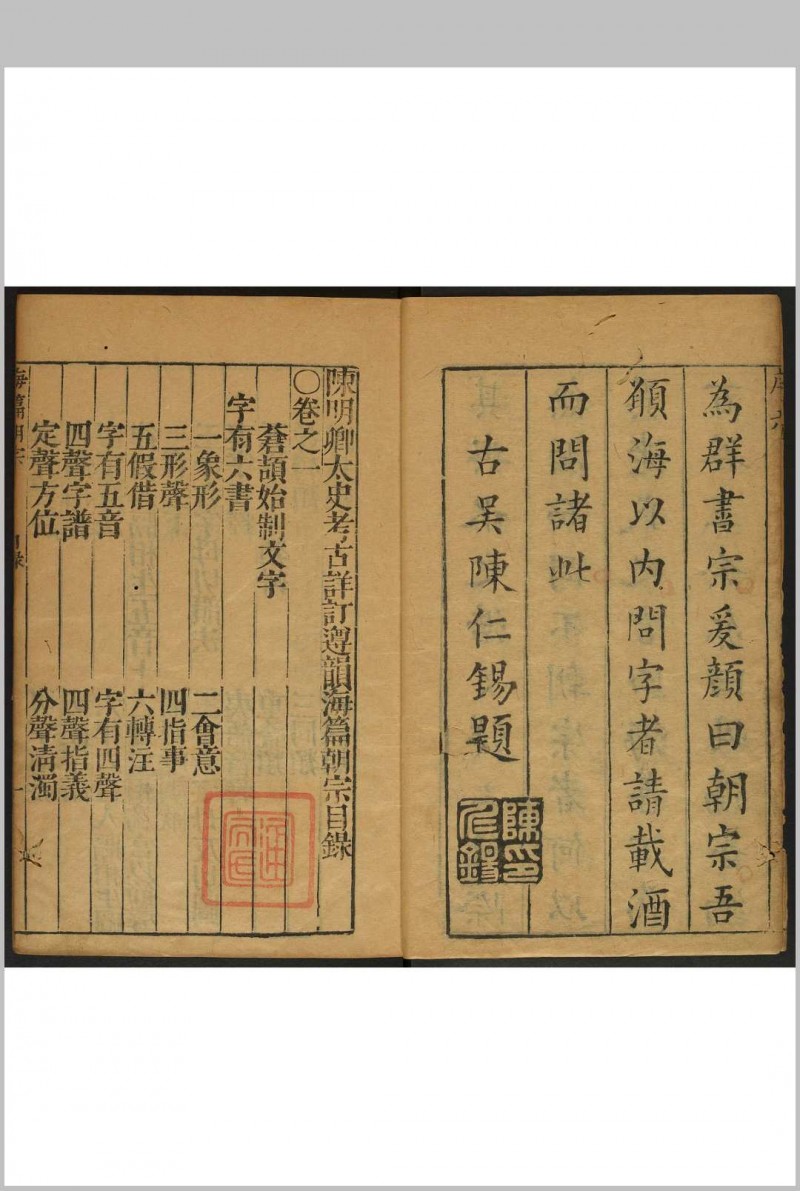 為群書宗爰顏曰朝宗吾
願海以內問字者請載酒
而問諸此
古吳陳仁錫題
陳明卿太史考古詳訂遵韻海篇朝宗目錄
○卷之一
蒼頡始制文字
字有六書
一象形 二會意
三形聲 四指事
五假借 六轉注
字有五音 字有四聲
四聲字譜 四聲指義
定聲方位 分聲清濁